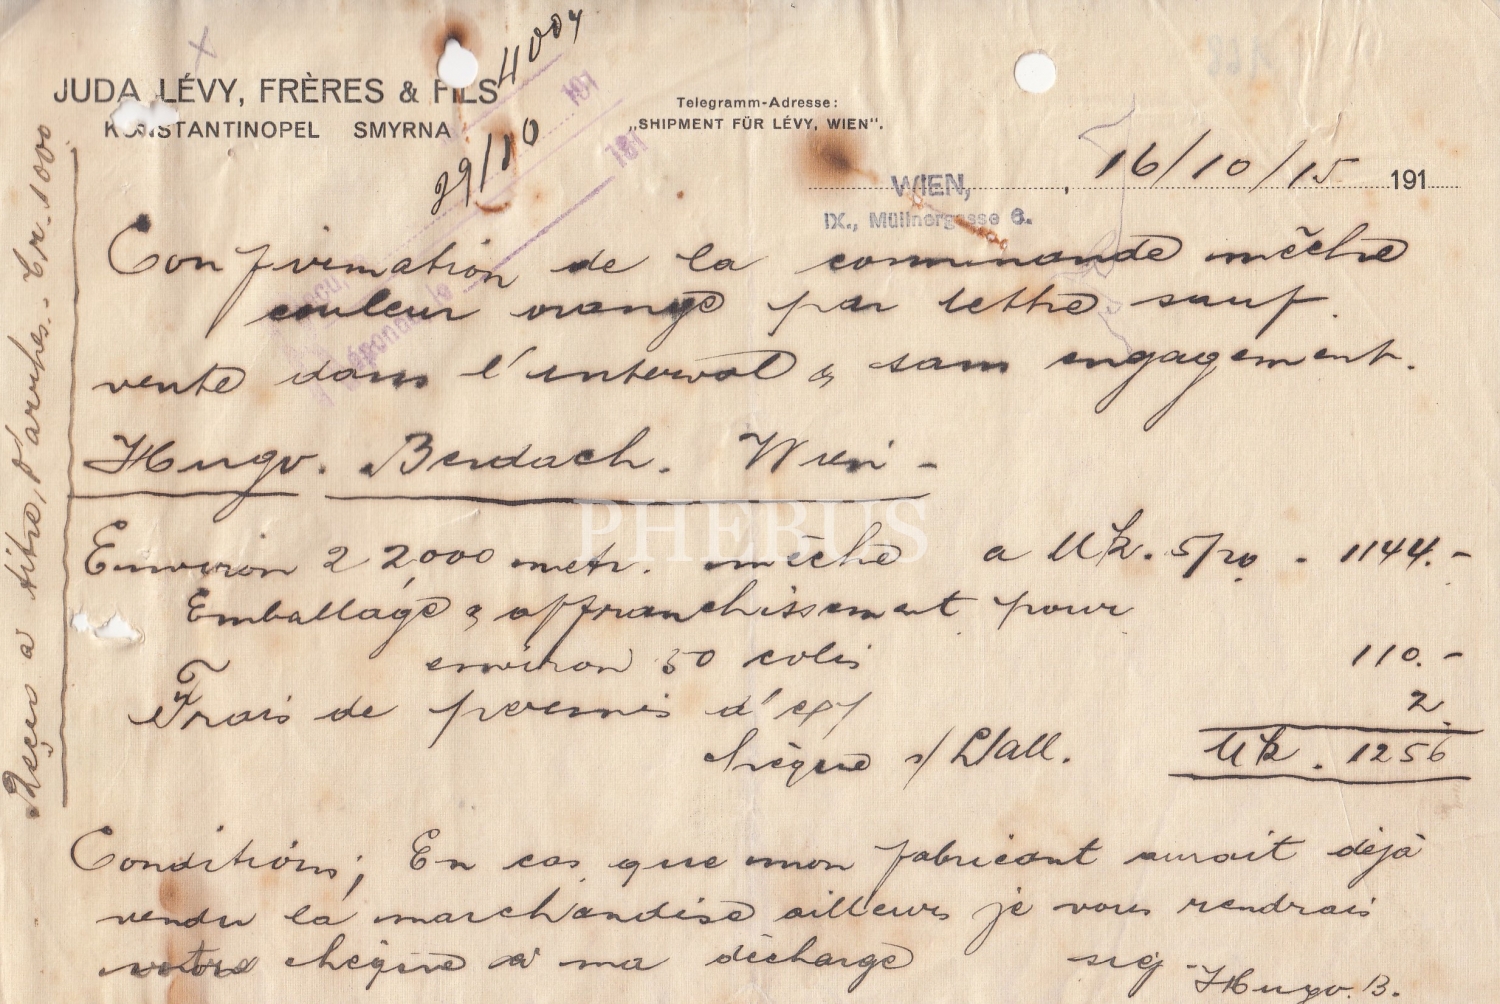 JUDA LÉVY, FRÈRES & FILS
KONSTANTINOPEL SMYRNA
4004
29/10
181
181
Telegramm-Adresse:
„SHIPMENT FÜR LÉVY, WIEN".
16/10/15 191
WIEN,
IX., Müllnergasse 6.
Confirmation de la commande mèche
couleur orange par lettre sauf
vente dans l'interval & sans engagement.
Hugo. Berdach. Wien -
Environ 22000 metr. mèche a Mk. 5/20 . 1144.-
Emballage & affranchissement pour
environ 50 colis 110.-
Frais de permis d'exp 2
chèque s/ D/all. Mk. 1256
Conditions; En cas que mon fabricant aurait déjà
vendu la marchandise ailleurs je vous rendrais
votre chèque à ma décharge
sig Hugo. B.
Reçus a titre d'arrhes.- Cr. 1000
PHEBUS